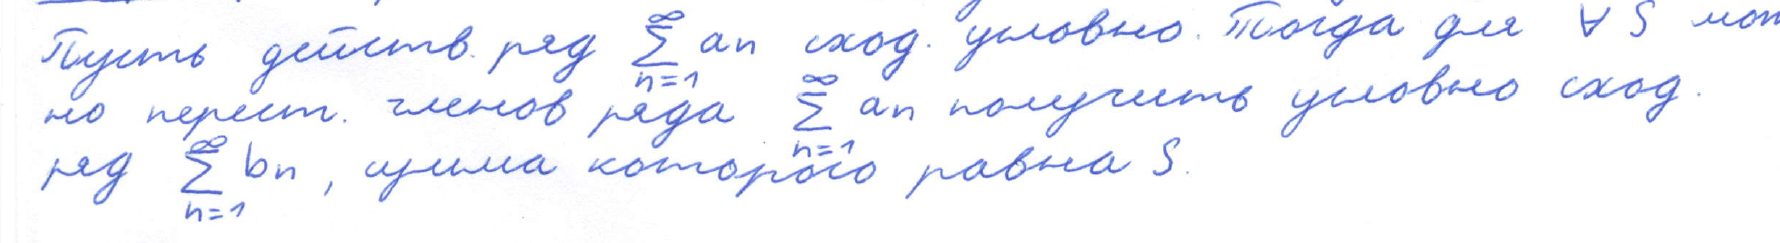 Пусть действ. ряд $\sum_{n=1}^{\infty} a_n$ сход. условно. Тогда для ∀ S мож
но перест. членов ряда $\sum_{n=1}^{\infty} a_n$ получить условно сход.
ряд $\sum_{n=1}^{\infty} b_n$, сумма которого равна S.